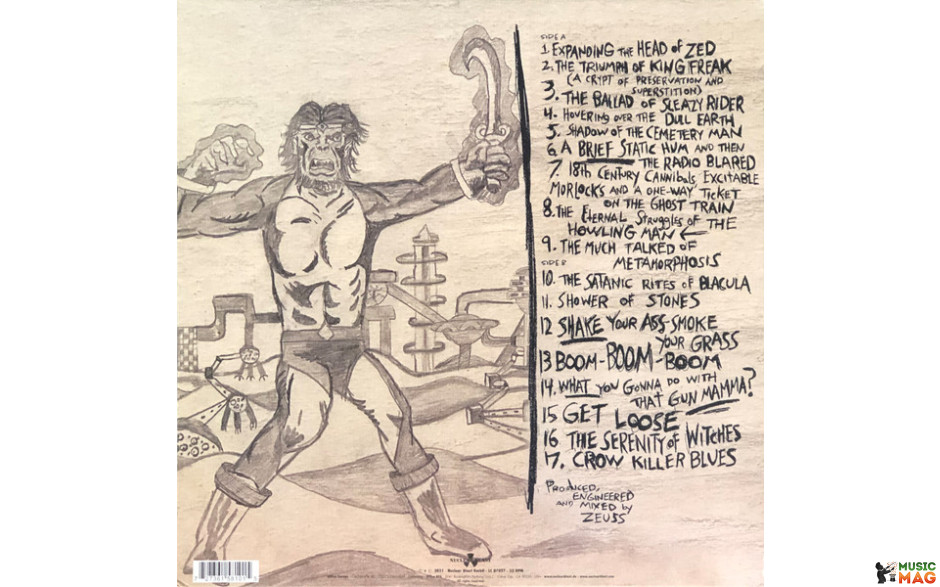 SIDE A
1. EXPANDING THE HEAD OF ZED
2. THE TRIUMPH OF KING FREAK
(A CRYPT OF PRESERVATION AND
SUPERSTITION)
3. THE BALLAD OF SLEAZY RIDER
4. HOVERING OVER THE DULL EARTH
5. SHADOW OF THE CEMETERY MAN
6. A BRIEF STATIC HUM AND THEN
THE RADIO BLARED
7. 18th CENTURY CANNIBALS EXCITABLE
MORLOCKS AND A ONE-WAY TICKET
ON THE GHOST TRAIN
8. THE ETERNAL STRUGGLES OF THE
HOWLING MAN
9. THE MUCH TALKED OF
METAMORPHOSIS
SIDE B
10. THE SATANIC RITES OF BLACULA
11. SHOWER OF STONES
12 SHAKE YOUR ASS-SMOKE
YOUR GRASS
13 BOOM-BOOM-BOOM
14. WHAT YOU GONNA DO WITH
THAT GUN MAMMA?
15 GET LOOSE
16 THE SERENITY OF WITCHES
17. CROW KILLER BLUES
PRODUCED,
ENGINEERED
AND MIXED by
ZEUSS
MUSIC
MAG